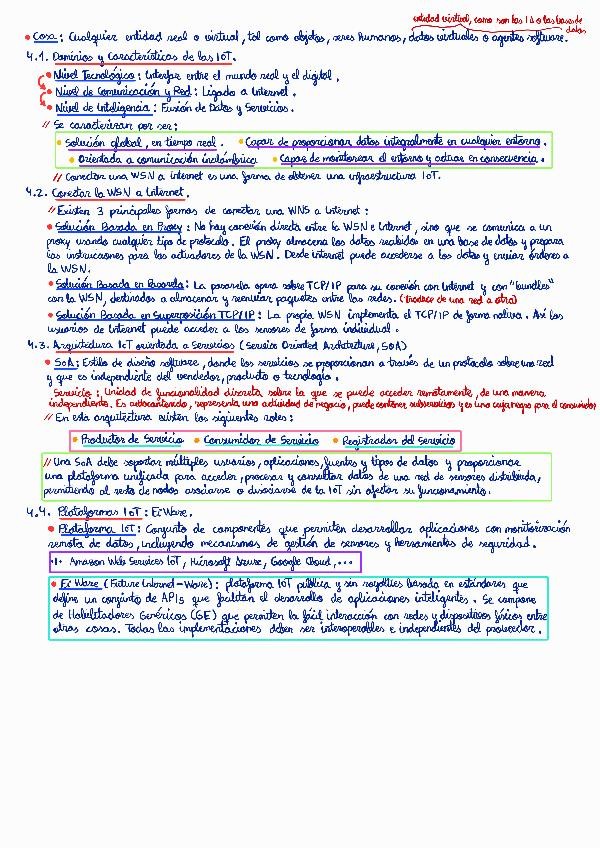 entidad virtual, como son las IA o las bases de datos
• Cosa: Cualquier entidad real o virtual, tal como objetos, seres humanos, datos virtuales o agentes software.
4.1. Dominios y Características de las IoT.
• Nivel Tecnológico: Interfaz entre el mundo real y el digital.
• Nivel de Comunicación y Red: Ligado a Internet.
• Nivel de Inteligencia: Fusión de Datos y Servicios.
// Se caracterizan por ser:
• Solución global, en tiempo real. • Capaz de proporcionar datos integralmente en cualquier entorno.
• Orientada a comunicación inalámbrica • Capaz de monitorear el entorno y actuar en consecuencia.
// Conectar una WSN a internet es una forma de obtener una infraestructura IoT.
4.2. Conectar la WSN a Internet.
// Existen 3 principales formas de conectar una WNS a Internet:
• Solución Basada en Proxy: No hay conexión directa entre la WSN e Internet, sino que se comunica a un
proxy usando cualquier tipo de protocolo. El proxy almacena los datos recibidos en una base de datos y prepara
las instrucciones para los actuadores de la WSN. Desde internet puede accederse a los datos y enviar órdenes a
la WSN.
• Solución Basada en Pasarela: La pasarela opera sobre TCP/IP para su conexión con Internet y con "bundles"
con la WSN, destinados a almacenar y reenviar paquetes entre las redes. (traduce de una red a otra)
• Solución Basada en Superposición TCP/IP: La propia WSN implementa el TCP/IP de forma nativa. Así los
usuarios de Internet puede acceder a los sensores de forma individual.
4.3. Arquitectura IoT orientada a Servicios (Service Oriented Architecture, SOA)
• SoA: Estilo de diseño software, donde los servicios se proporcionan a través de un protocolo sobre una red
y que es independiente del vendedor, producto o tecnología.
Servicio: Unidad de funcionalidad discreta sobre la que se puede acceder remotamente, de una manera
independiente. Es autocontenido, representa una actividad de negocio, puede contener subservicios y es una caja negra para el consumidor
// En esta arquitectura existen los siguientes roles:
• Productor de Servicio • Consumidor de Servicio • Registrador del Servicio
// Una SoA debe soportar múltiples usuarios, aplicaciones, fuentes y tipos de datos y proporcionar
una plataforma unificada para acceder, procesar y consultar datos de una red de sensores distribuida,
permitiendo al resto de nodos asociarse o disociarse de la IoT sin afectar su funcionamiento.
4.4. Plataformas IoT: FiWare.
• Plataforma IoT: Conjunto de componentes que permiten desarrollar aplicaciones con monitorización
remota de datos, incluyendo mecanismos de gestión de sensores y herramientas de seguridad.
Amazon Web Services IoT, Microsoft Azure, Google Cloud, ...
• FiWare (Future Internet-Ware): plataforma IoT pública y sin royalties basada en estándares que
define un conjunto de APIs que facilitan el desarrollo de aplicaciones inteligentes. Se compone
de Habilitadores Genéricos (GE) que permiten la fácil interacción con redes y dispositivos físicos entre
otras cosas. Todas las implementaciones deben ser interoperables e independientes del proveedor.